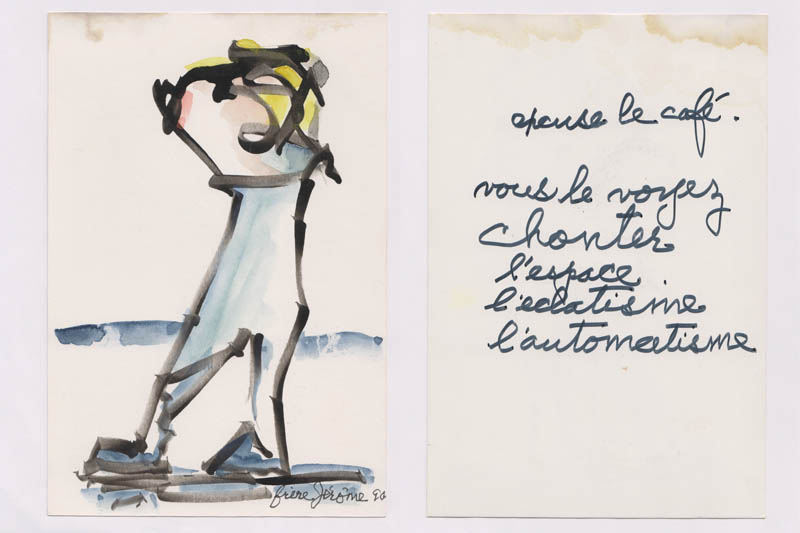 frère Jérôme 90
epouse le café.
vous le voyez
chanter
l'espace
l'eclatisme
l'automatisme